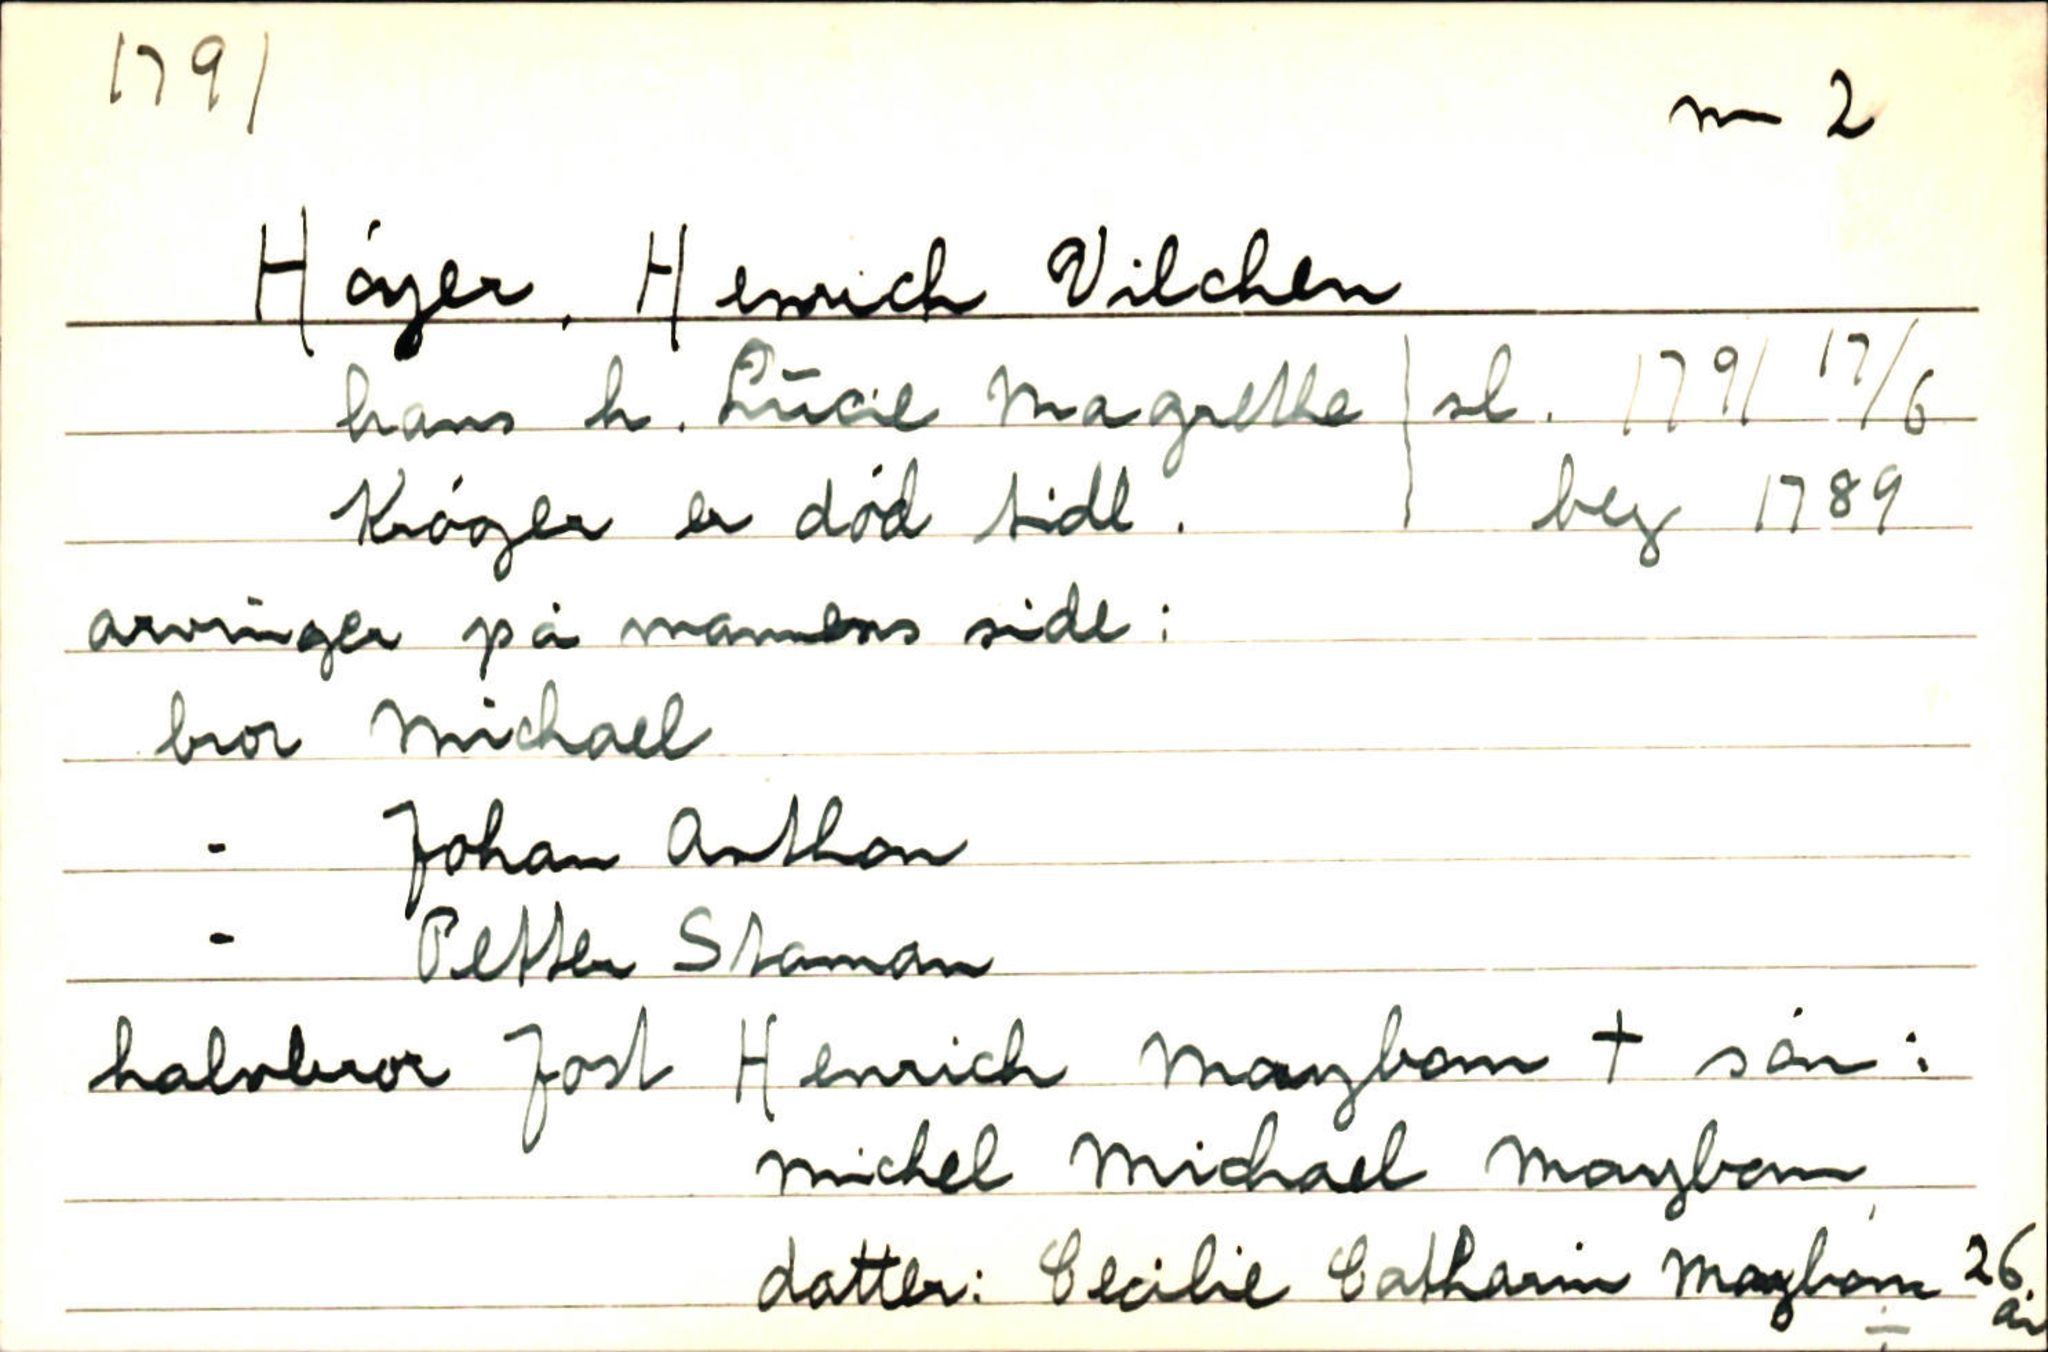 1791
m 2
Höyer, Henrich Vilchen
hans h. Lucie Magrethe | sl. 1791 17/6
Kröger er død tidl. | beg 1789
arvinger på mannens side:
bror Michael
- Johan Anthon
- Petter Staman
halvbror Jost Henrich Maybom + sön:
Michel Michael Maybom,
datter: Cecilie Catharin Maybom 26 år